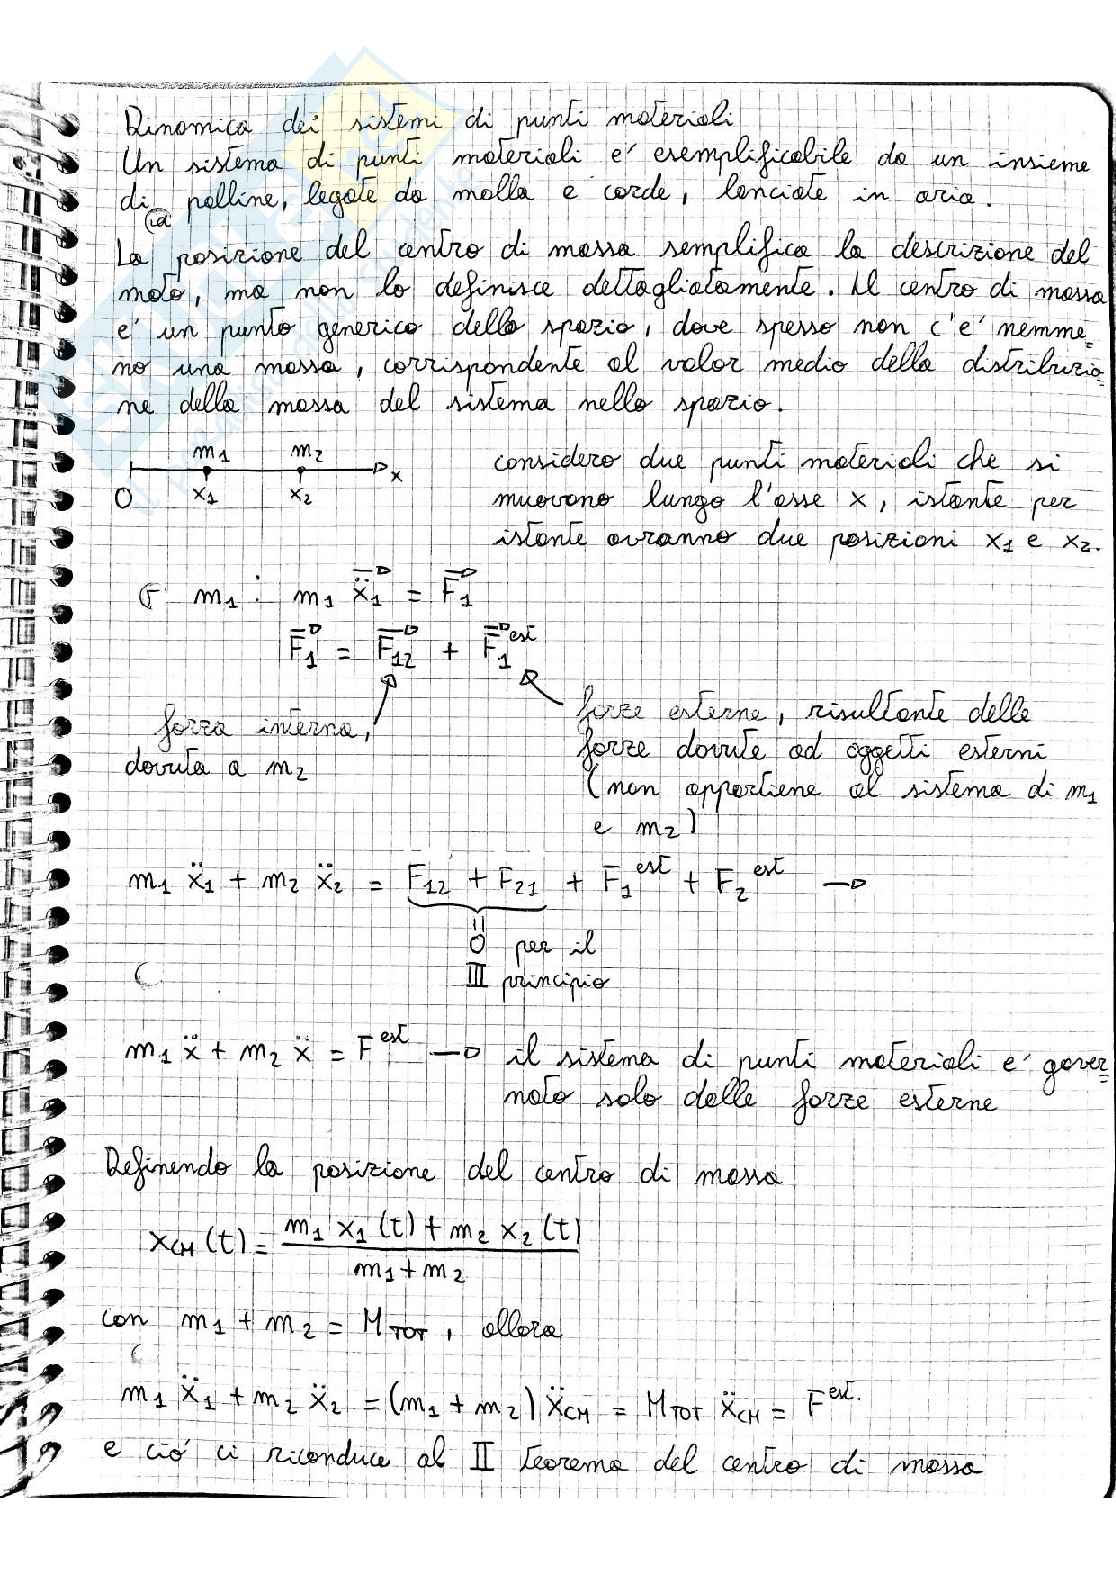 Dinamica dei sistemi di punti materiali
Un sistema di punti materiali e' esemplificabile da un insieme
di palline, legate da molla e corde, lanciate in aria.
La posizione del centro di massa semplifica la descrizione del
moto, ma non lo definisce dettagliatamente. Il centro di massa
e' un punto generico dello spazio, dove spesso non c'e' nemme=
no una massa, corrispondente al valor medio della distribuzio=
ne della massa del sistema nello spazio.
m₁ m₂
O x₁ x₂ x
considero due punti materiali che si
muovono lungo l'asse x, istante per
istante avranno due posizioni x₁ e x₂.
m₁ : m₁ ẍ₁ = F₁
F₁ = F₁₂ + F₁ᵉˢᵗ
forza interna,
dovuta a m₂
forze esterne, risultante delle
forze dovute ad oggetti esterni
(non appartiene al sistema di m₁
e m₂)
m₁ ẍ₁ + m₂ ẍ₂ = F₁₂ + F₂₁ + F₁ᵉˢᵗ + F₂ᵉˢᵗ →
= 0 per il
III principio
m₁ ẍ + m₂ ẍ = Fᵉˢᵗ → il sistema di punti materiali e' gover=
nato solo dalle forze esterne
Definendo la posizione del centro di massa
x_CM (t) = (m₁ x₁ (t) + m₂ x₂ (t)) / (m₁ + m₂)
con m₁ + m₂ = M_TOT, allora
m₁ ẍ₁ + m₂ ẍ₂ = (m₁ + m₂) ẍ_CM = M_TOT ẍ_CM = Fᵉˢᵗ.
e ció ci riconduce al II teorema del centro di massa